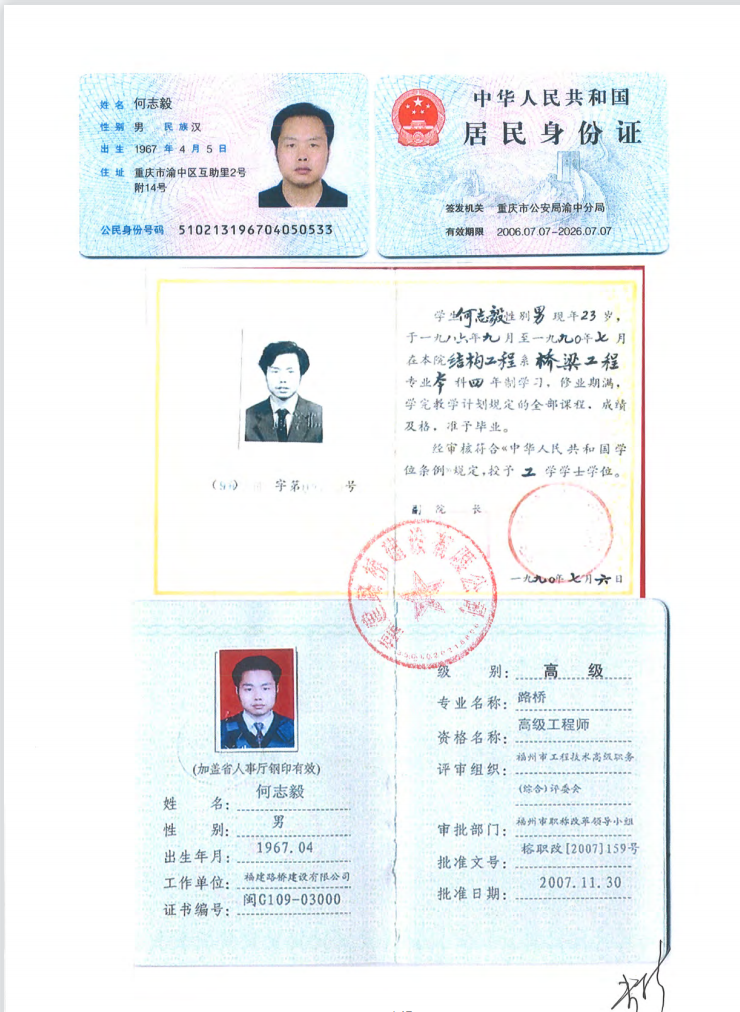 姓名 何志毅
性别 男 民族 汉
出生 1967 年 4 月 5 日
住址 重庆市渝中区互助里2号
附14号
公民身份号码 510213196704050533
中华人民共和国
居民身份证
签发机关 重庆市公安局渝中分局
有效期限 2006.07.07-2026.07.07
学生何志毅性别男现年23岁，
于一九八六年九月至一九九〇年七月
在本院结构工程系桥梁工程
专业本科四年制学习，修业期满，
学完教学计划规定的全部课程，成绩
及格，准予毕业。
经审核符合《中华人民共和国学
位条例》规定，授予工学学士学位。
字第 号
副院长
一九九〇年七月六日
(加盖省人事厅钢印有效)
姓名：何志毅
性别：男
出生年月：1967.04
工作单位：福建路桥建设有限公司
证书编号：闽G109-03000
级别：高级
专业名称：路桥
资格名称：高级工程师
评审组织：福州市工程技术高级职务
(综合)评委会
审批部门：福州市职称改革领导小组
批准文号：榕职改[2007]159号
批准日期：2007.11.30